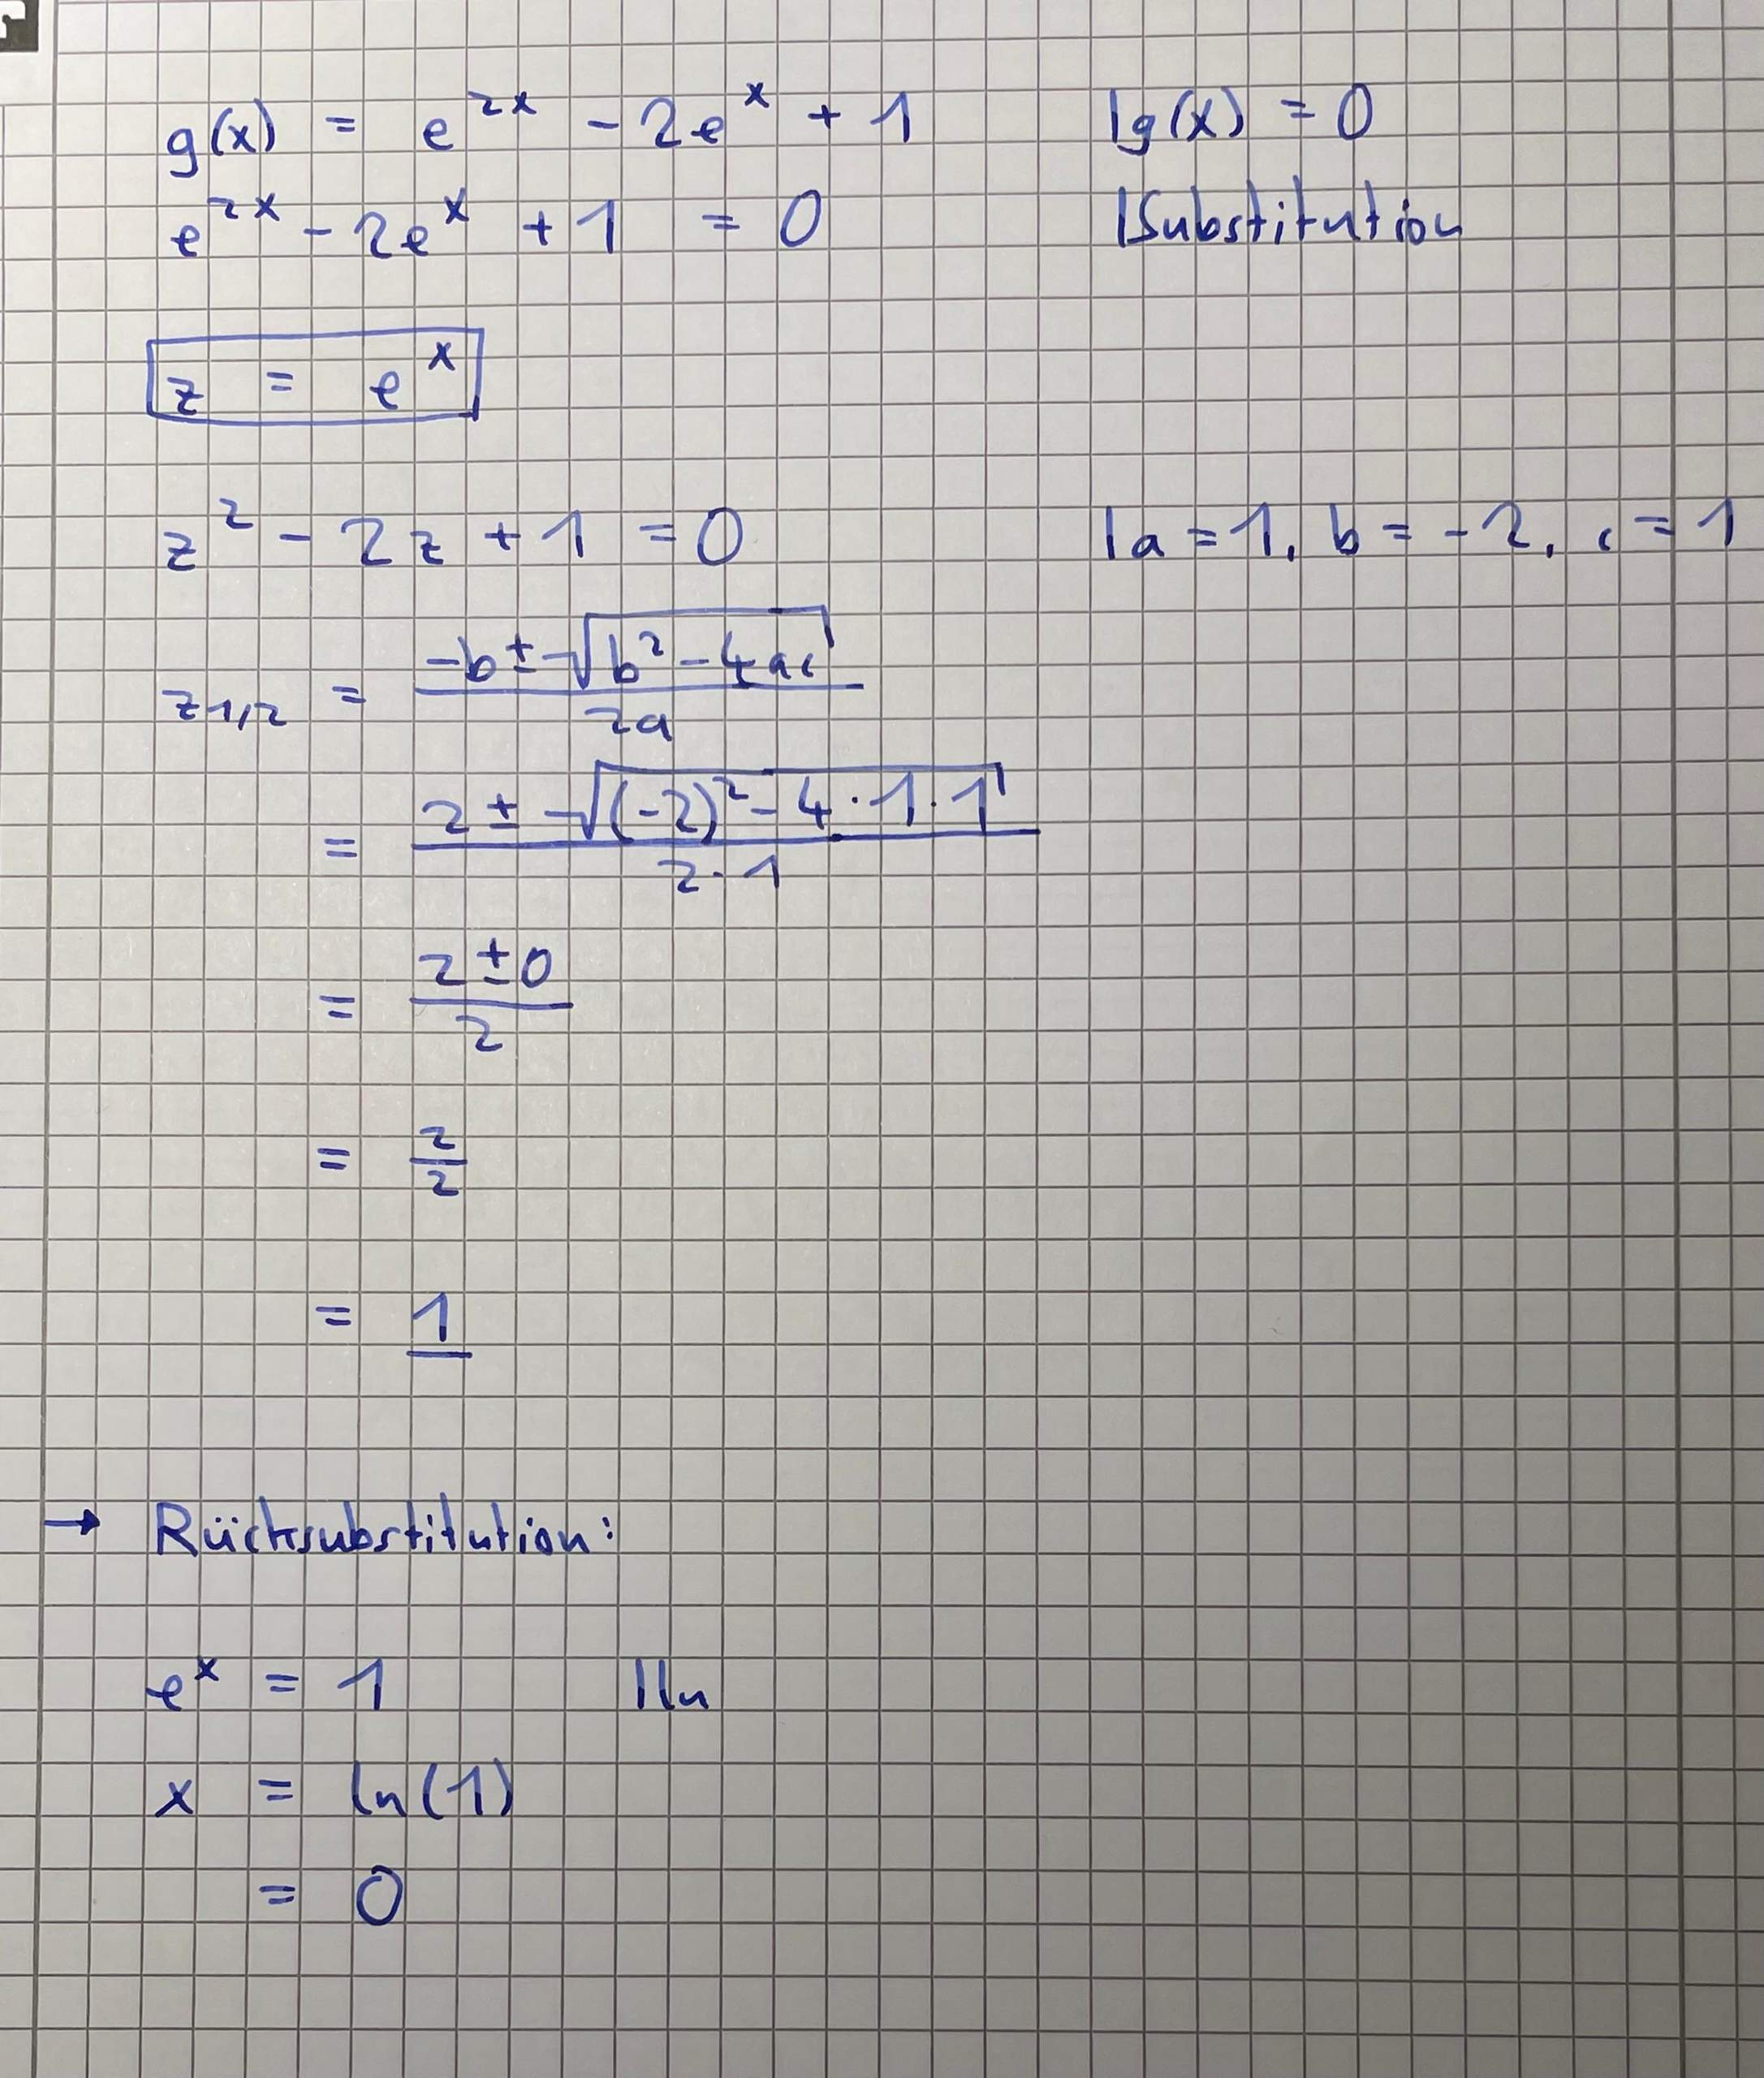 g(x) = e^{2x} - 2e^x + 1 | g(x) = 0
e^{2x} - 2e^x + 1 = 0 | Substitution
z = e^x
z^2 - 2z + 1 = 0 | a = 1, b = -2, c = 1
z_{1,2} = \frac{-b ± √(b^2 - 4ac)}{2a}
= \frac{2 ± √((-2)^2 - 4 · 1 · 1)}{2 · 1}
= \frac{2 ± 0}{2}
= \frac{2}{2}
= 1
→ Rücksubstitution:
e^x = 1 | ln
x = ln(1)
= 0